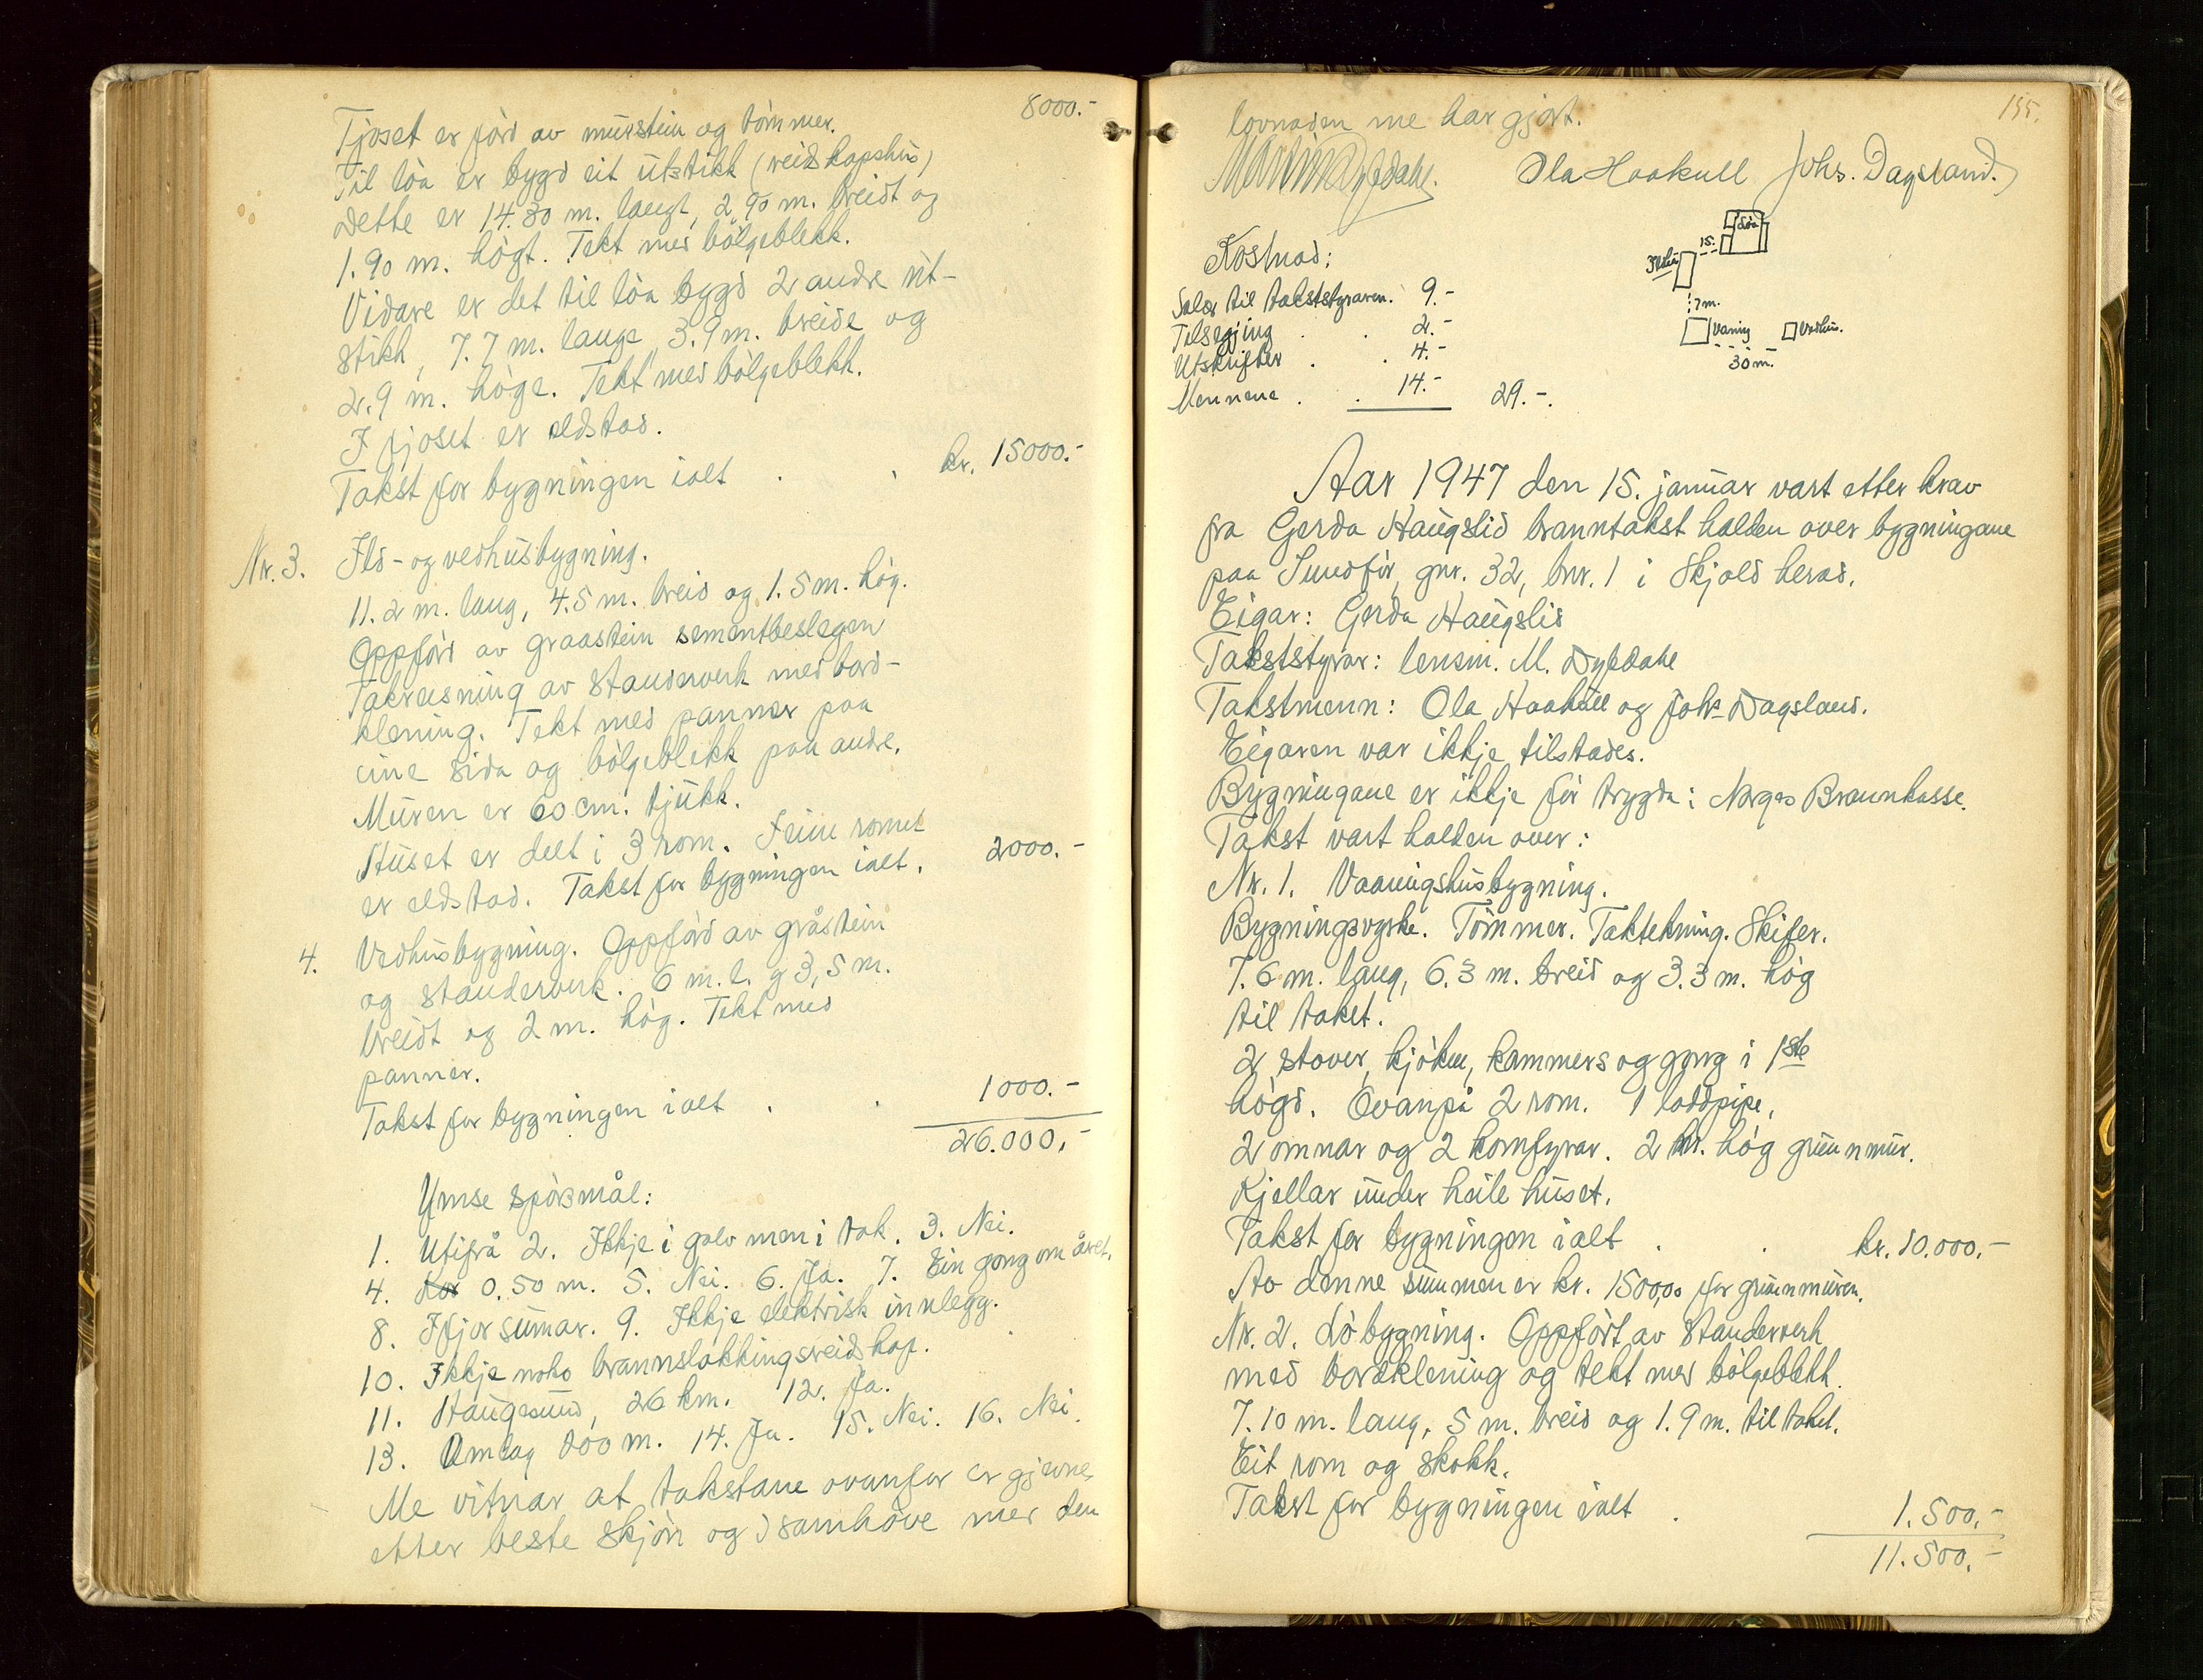 8000.-
Fjoset er förd av murstein og tömmer.
Til löa er bygd eit utstikk (reidskapshus)
Dette er 14.30 m. langt, 2,90 m. breidt og
1.90 m. högt. Tekt med bölgeblekk.
Vidare er det til löa bygd 2 andre ut-
stikk, 7.7 m. lange 3.9 m. breide og
2.9 m. höge. Tekt med bölgeblekk.
I fjoset er eldstad.
Takst for bygningen ialt . . kr. 15000.-
Nr. 3. Ild- og vedhusbygning.
11.2 m. lang, 4.5 m. breid og 1.5 m. hög.
Oppförd av graastein sementbeslegen
Takreisning av standerverk med bord-
klening. Tekt med panner paa
eine sida og bölgeblekk paa andre.
Muren er 60 cm. tjukk.
Huset er delt i 3 rom. I eine romet
er eldstad. Takst for bygningen ialt. 2000.-
4. Vedhusbygning. Oppförd av gråstein
og standerverk. 6 m. l. g 3,5 m.
breidt og 2 m. hög. Tekt med
panner.
Takst for bygningen ialt . . 1000.-
26.000.-
Ymse spörsmål:
1. Utifrå 2. Ikkje i golv men i tak. 3. Nei.
4. 0.50 m. 5. Nei. 6. Ja. 7. Ein gong om året.
8. Ifjor sumar. 9. Ikkje elektrisk innlegg.
10. Ikkje noko brannslokkingsreidskap.
11. Haugesund, 26 km. 12. Ja.
13. Umlag 800 m. 14. Ja. 15. Nei. 16. Nei.
Me vitnar at takstane ovanfor er gjevne
etter beste skjön og i samhöve med den
155.
lovnaden me har gjort.
Ola Haakull Johs. Dagsland.
Löa
15.
Ildhus
7 m.
Vaning Vedhus.
30 m.
Kostnad:
Salær til takststyraren. 9.-
Tilsegjing . . 2.-
Utskrifter . . 4.-
Mennene . . 14.- 29.-.
Aar 1947 den 15. januar vart etter krav
fra Gerda Haugslid branntakst halden over bygningane
paa Sundför, gnr. 32, bnr. 1 i Skjold herad.
Eigar: Gerda Haugslid
Takststyrar: lensm. M. Dybdahl
Takstmenn: Ola Haakull og Johs Dagsland.
Eigaren var ikkje tilstades.
Bygningane er ikkje för trygda i Norges Brannkasse.
Takst vart halden over:
Nr. 1. Vaaningshusbygning.
Bygningsvyrke. Tömmer. Taktekning. Skifer.
7.6 m. lang, 6.3 m. breid og 3.3 m. hög
til taket.
2 stover, kjöken, kammers og gong i 1ste
högd. Ovanpå 2 rom. 1 loddpipe,
2 omnar og 2 komfyrar. 2 m. hög grunnmur.
Kjellar under heile huset.
Takst for bygningen ialt . . kr. 10.000.-
Av denne summen er kr. 1500,00 for grunnmuren.
Nr. 2. Löbygning. Oppfört av standerverk
med bordklening og tekt med bölgeblekk.
7.10 m. lang, 5 m. breid og 1.9 m. til taket.
Eit rom og skokk.
Takst for bygningen ialt . 1.500.-
11.500.-